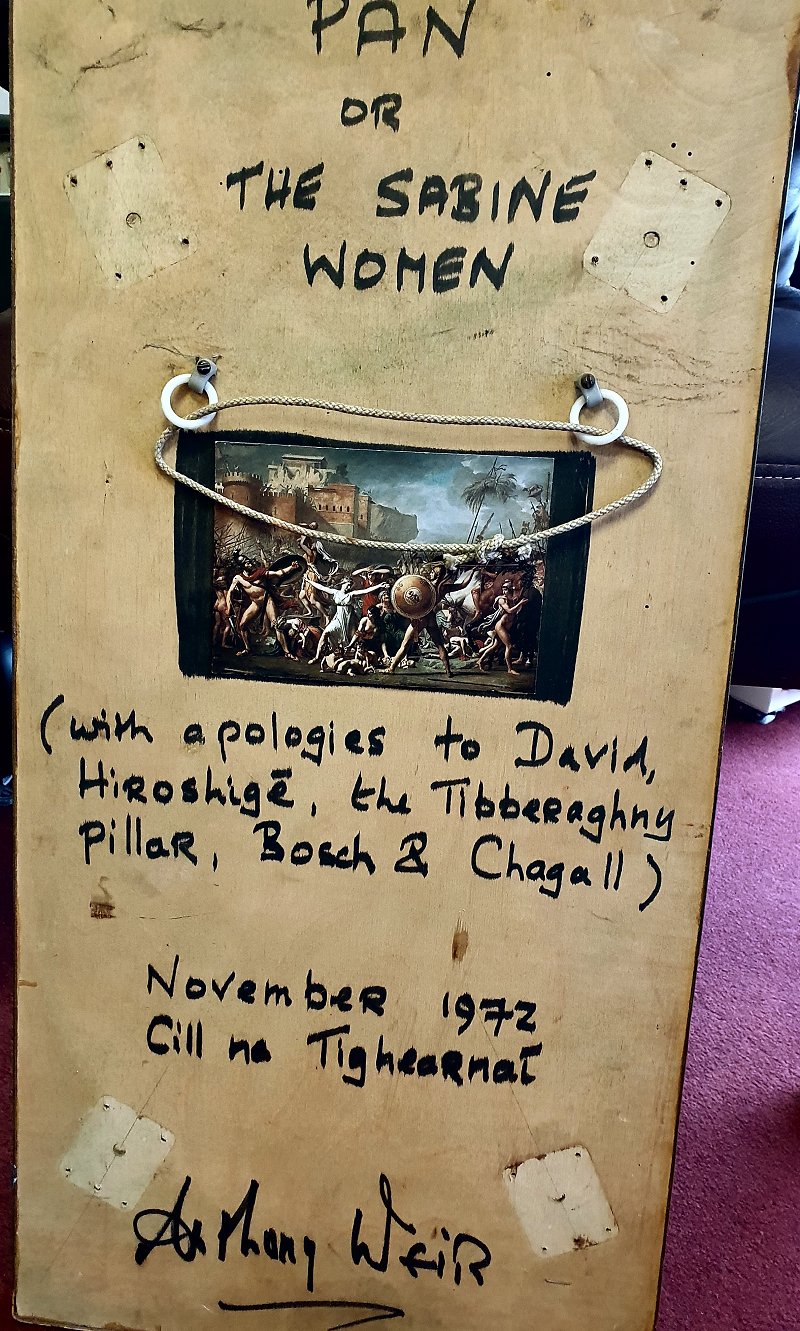 PAN
OR
THE SABINE
WOMEN
(with apologies to David,
Hiroshigē, the Tibberaghny
Pillar, Bosch & Chagall)
November 1972
Cill na Tighearnaī
Anthony Weir